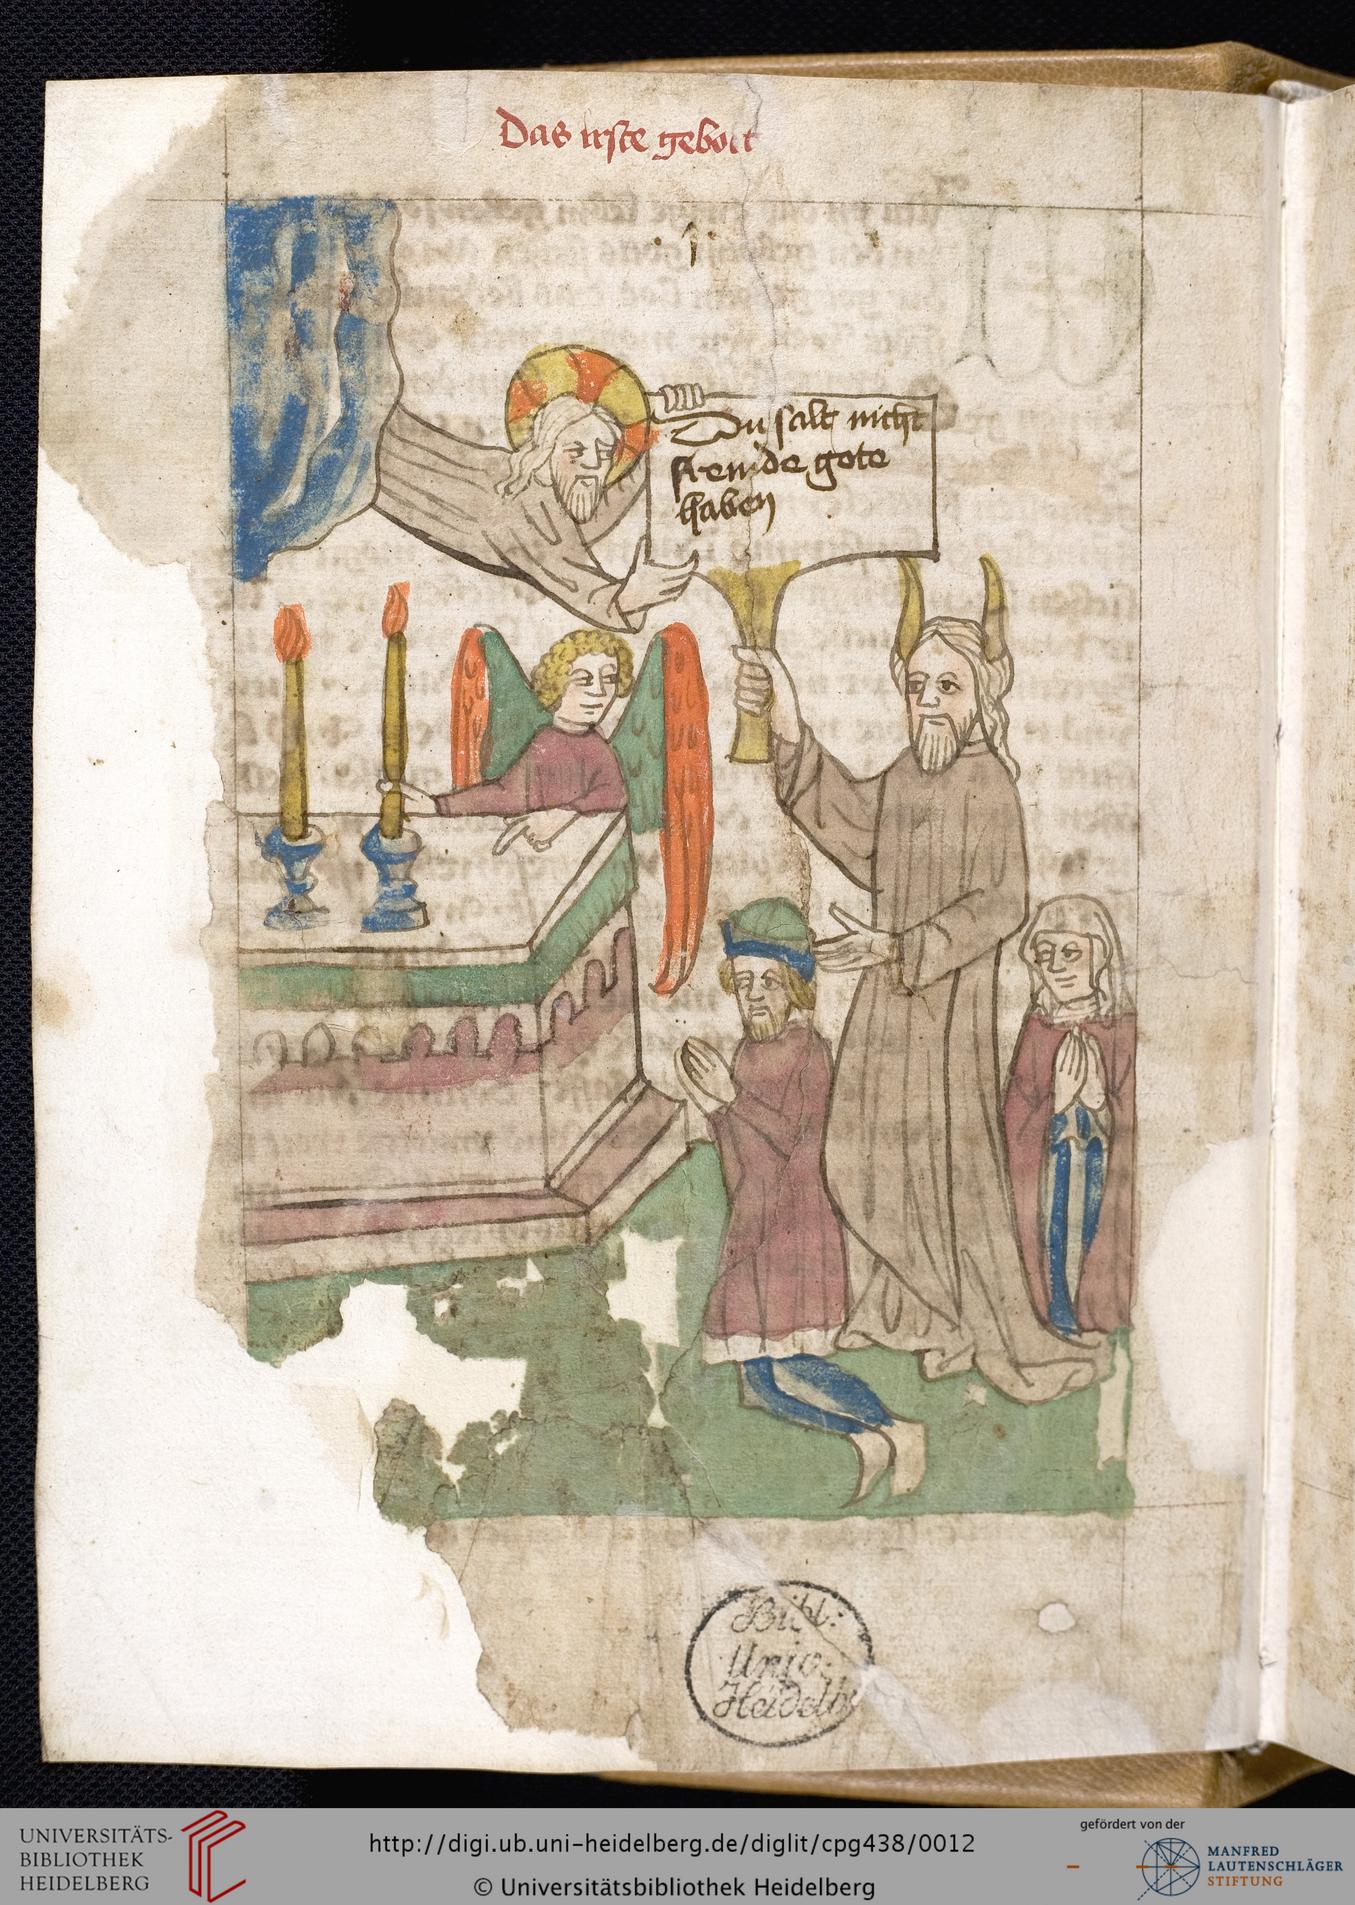 Das erste gebott
1
Du salt nicht
fremde gote
haben
Bibl:
Univ.
Heidelb
UNIVERSITÄTS-
BIBLIOTHEK
HEIDELBERG
http://digi.ub.uni-heidelberg.de/diglit/cpg438/0012
© Universitätsbibliothek Heidelberg
gefördert von der
MANFRED
LAUTENSCHLÄGER
STIFTUNG